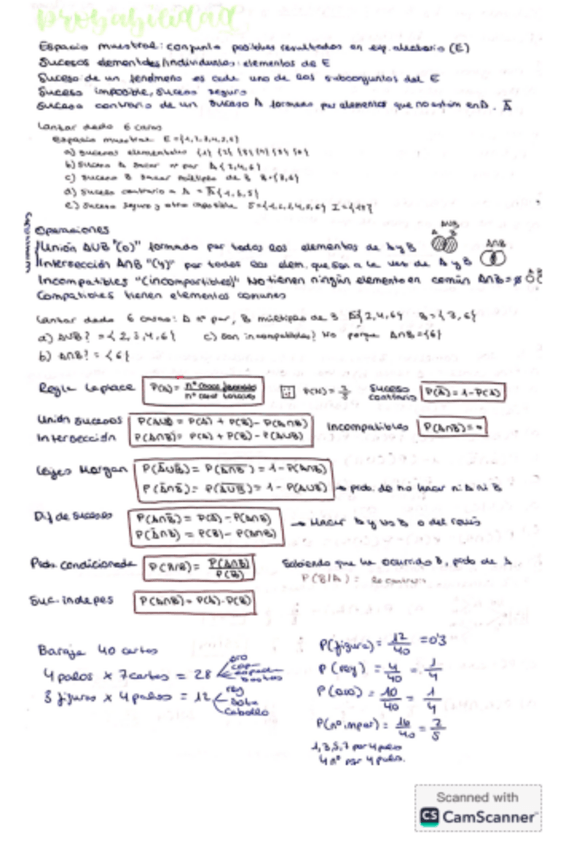 Probabilidad
Espacio muestral: conjunto posibles resultados en exp. aleatorio (E)
Sucesos elementales/individuales: elementos de E
Suceso de un fenómeno es cada uno de los subconjuntos del E
Suceso imposible, suceso seguro
Suceso contrario de un suceso A formado por elementos que no están en A. A̅
Lanzar dado 6 caras
Espacio muestral E={1,2,3,4,5,6}
a) sucesos elementales {1} {2} {3} {4} {5} {6}
b) suceso A sacar nº par A{2,4,6}
c) suceso B sacar múltiplo de 3 B={3,6}
d) suceso contrario a A = A̅{1,3,5}
e) suceso seguro y otro imposible S={1,2,3,4,5,6} I={
Operaciones
Unión A∪B "(o)" formado por todos los elementos de A y B
A∪B
A B
Intersección A∩B "(y)" por todos los elem. que son a la vez de A y B
A∩B
Incompatibles "(incompartibles)" No tienen ningún elemento en común A∩B=∅
A B
Compatibles tienen elementos comunes
Lanzar dado 6 caras: A nº par, B múltiplo de 3 A{2,4,6} B={3,6}
a) A∪B? = {2,3,4,6} c) Son incompatibles? No porque A∩B={6}
b) A∩B? = {6}
Regla Laplace P(A)= nº casos favorables / nº casos totales
Suceso contrario P(A̅)=1-P(A)
Unión sucesos P(A∪B) = P(A) + P(B) - P(A∩B) Incompatibles P(A∩B)=0
Intersección P(A∩B) = P(A) + P(B) - P(A∪B)
Leyes Morgan P(A̅∪B̅) = P(A̅∩̅B̅) = 1 - P(A∩B)
P(A̅∩B̅) = P(A̅∪̅B̅) = 1 - P(A∪B) → prob. de no hacer ni A ni B
Dif de sucesos P(A∩B̅) = P(A) - P(A∩B) → Hacer A y no B o del revés
P(A̅∩B) = P(B) - P(A∩B)
Prob. condicionada P(A/B) = P(A∩B) / P(B) Sabiendo que ha ocurrido B, prob de A
P(B/A) =
Suc. indepes P(A∩B) = P(A)·P(B)
Baraja 40 cartas
4 palos x 7 cartas = 28 oro copa espada bastos
3 figuras x 4 palos = 12 rey sota caballo
P(figura) = 12/40 = 0'3
P(rey) = 4/40 = 1/4
P(oro) = 10/40 = 1/4
P(nº impar) = 16/40 = 2/5
1,3,5,7 por 4 palos
4 nº por 4 palos.
Scanned with
CS CamScanner